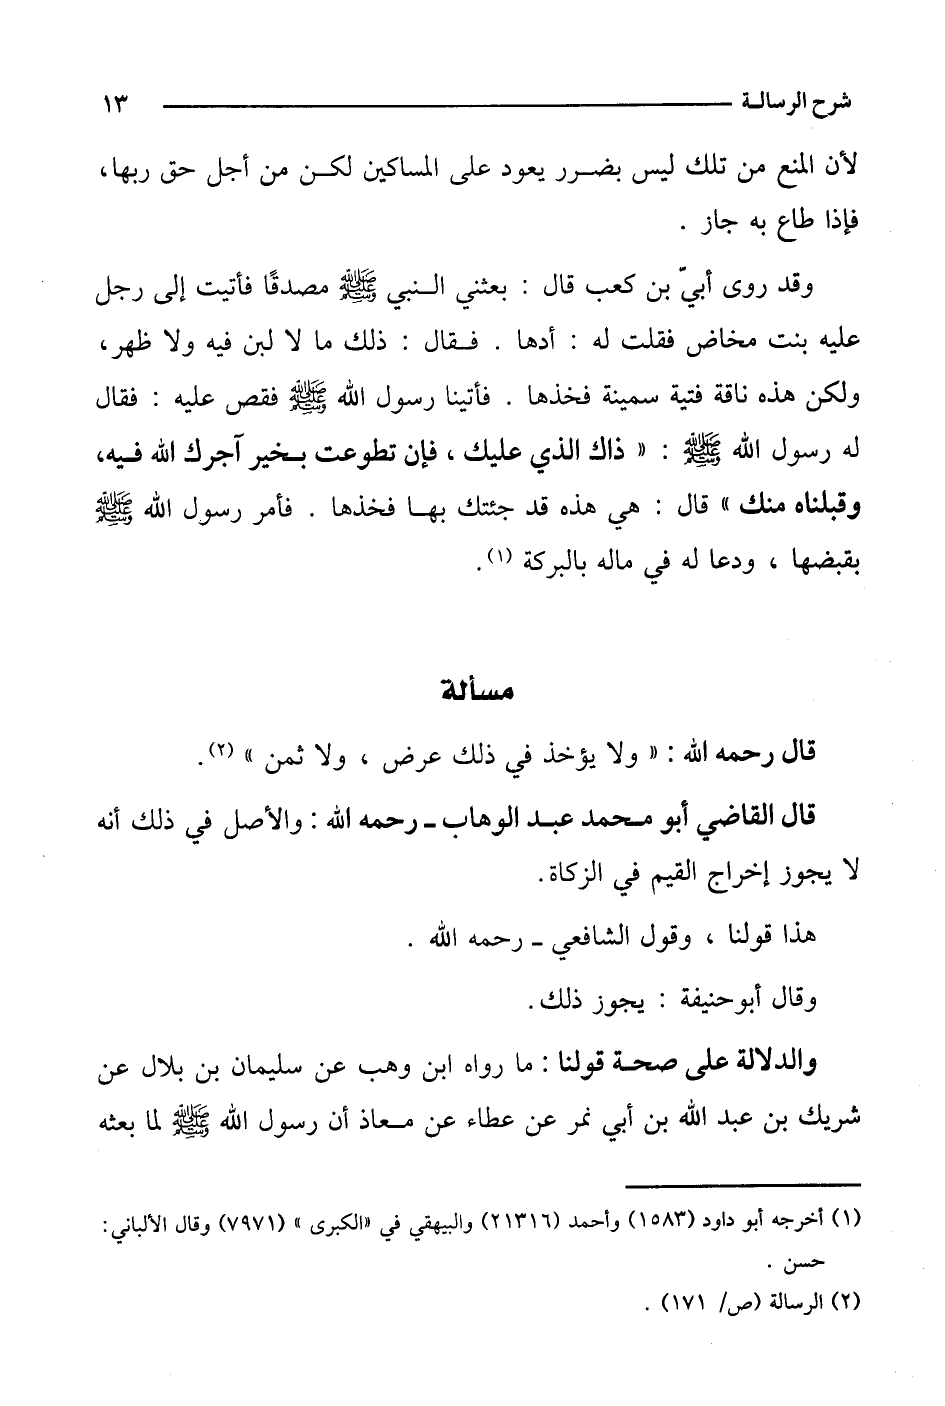 شرح الرسالة ١٣
لأن المنع من تلك ليس بضرر يعود على المساكين لكن من أجل حق ربها،
فإذا طاع به جاز .
وقد روى أبيّ بن كعب قال : بعثني النبي ﷺ مصدقًا فأتيت إلى رجل
عليه بنت مخاض فقلت له : أدها . فقال : ذلك ما لا لبن فيه ولا ظهر،
ولكن هذه ناقة فتية سمينة فخذها . فأتينا رسول الله ﷺ فقص عليه : فقال
له رسول الله ﷺ : « ذاك الذي عليك ، فإن تطوعت بخير آجرك الله فيه،
وقبلناه منك » قال : هي هذه قد جئتك بها فخذها . فأمر رسول الله ﷺ
بقبضها ، ودعا له في ماله بالبركة (١).
مسألة
قال رحمه الله : « ولا يؤخذ في ذلك عرض ، ولا ثمن » (٢).
قال القاضي أبو محمد عبد الوهاب ـ رحمه الله : والأصل في ذلك أنه
لا يجوز إخراج القيم في الزكاة.
هذا قولنا ، وقول الشافعي ـ رحمه الله .
وقال أبوحنيفة : يجوز ذلك.
والدلالة على صحة قولنا : ما رواه ابن وهب عن سليمان بن بلال عن
شريك بن عبد الله بن أبي نمر عن عطاء عن معاذ أن رسول الله ﷺ لما بعثه
(١) أخرجه أبو داود (١٥٨٣) وأحمد (٢١٣١٦) والبيهقي في «الكبرى » (٧٩٧١) وقال الألباني :
حسن .
(٢) الرسالة (ص/ ١٧١) .